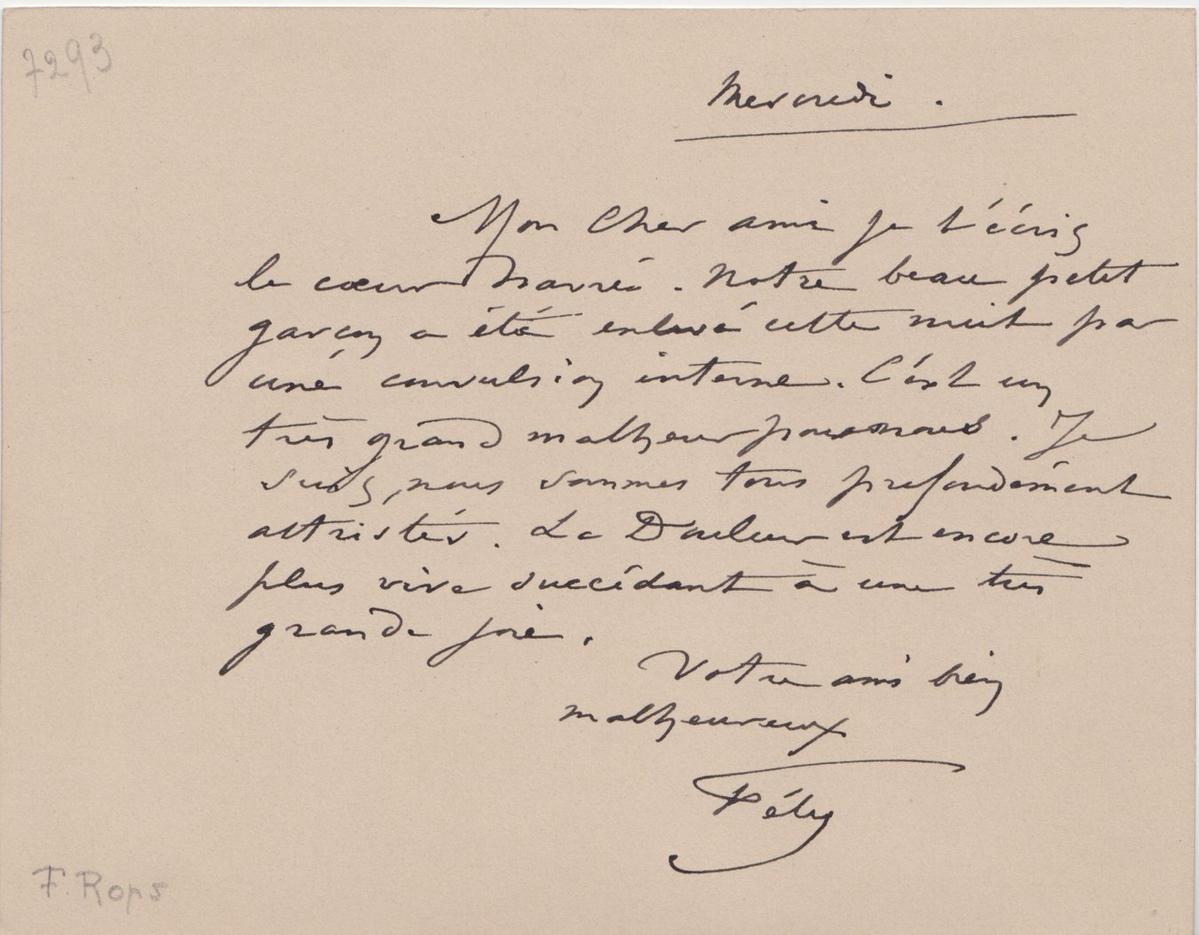 7293
Mercredi .
Mon Cher ami je t'écris
le cœur navré. Notre beau petit
garçon a été enlevé cette nuit par
une convulsion interne. C'est un
très grand malheur pour nous. Je
suis, nous sommes tous profondément
attristés. La Douleur est encore
plus vive succédant à une très
grande joie.
Votre ami bien
malheureux
Fély
F. Rops